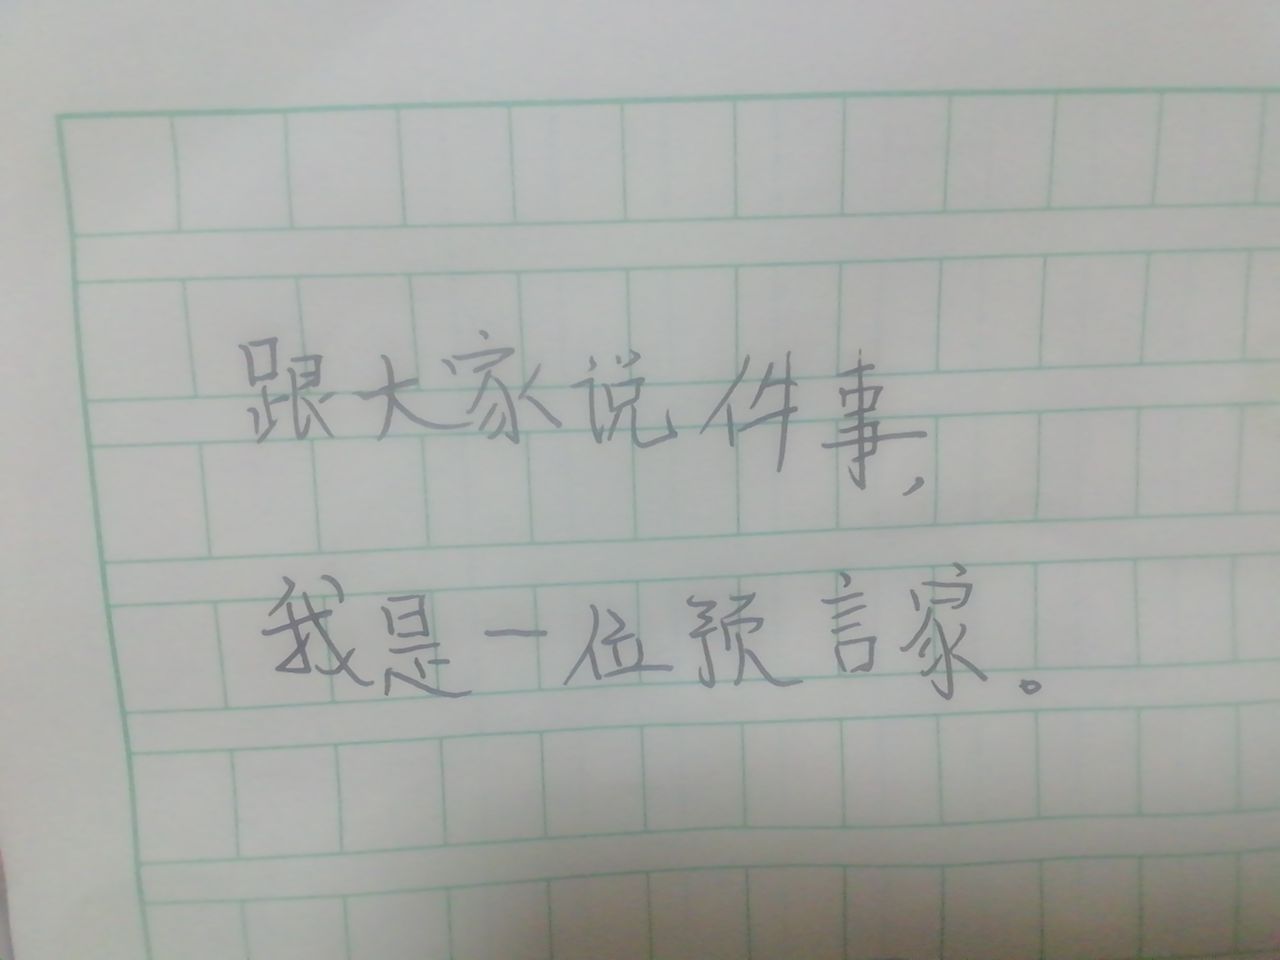 跟大家说件事，
我是一位预言家。